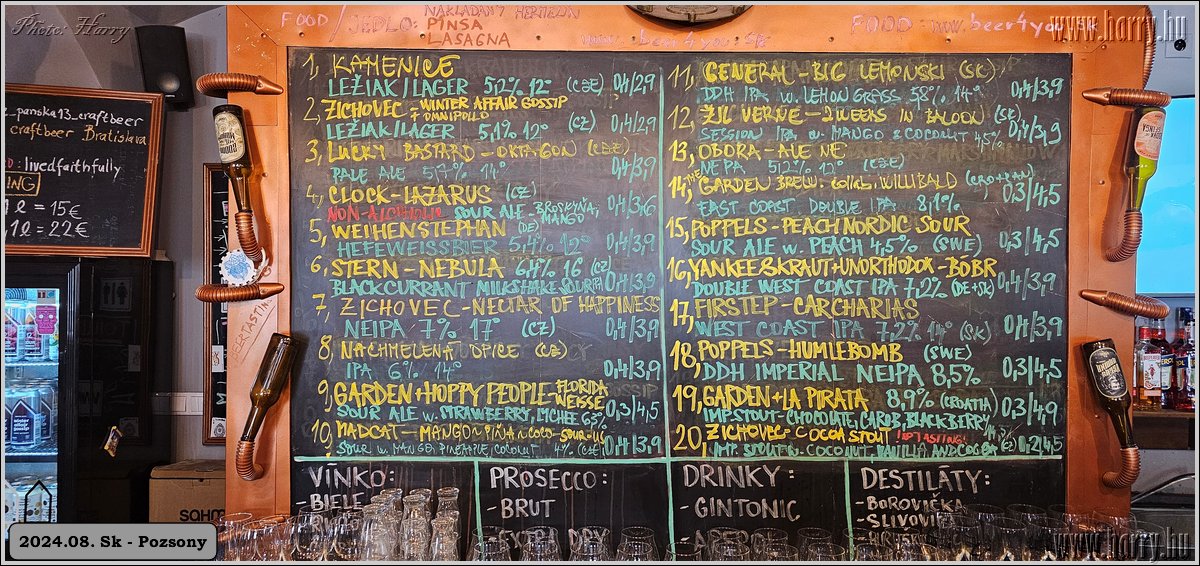 Photo: Harry
www.harry.hu
FOOD / JEDLO:
NAKLADANÝ HERMELÍN
PINSA
LASAGNA
www.beer4you.sk
FOOD: www.beer4you.sk
_panska13_craftbeer
craftbeer Bratislava
: livedfaithfully
1l = 15€
l = 22€
1, KAMENICE
LEŽIAK/LAGER 5,2% 12° (CZE) 0,4/2,9
2, ZICHOVEC - WINTER AFFAIR GOSSIP
+ OMNIPOLLO
LEŽIAK/LAGER 5,1% 12° (CZ) 0,4/2,9
3, LUCKY BASTARD - OKTAGON (CZE)
PALE ALE 5,7% 14° 0,4/3,9
4, CLOCK - LAZARUS (CZ)
NON-ALCOHOLIC SOUR ALE - BROSKYŇA, MANGO 0,4/3,6
5, WEIHENSTEPHAN (DE)
HEFEWEISSBIER 5,4% 12° 0,4/3,9
6, STERN - NEBULA 6,4% 16 (CZ)
BLACKCURRANT MILKSHAKE SOUR IPA 0,4/3,9
7, ZICHOVEC - NECTAR OF HAPPINESS
NEIPA 7% 17° (CZ) 0,4/3,9
8, NACHMELENÁ OPICE (CZ)
IPA 6% 14° 0,4/3,9
9, GARDEN + HOPPY PEOPLE - FLORIDA WEISSE
SOUR ALE w. STRAWBERRY, LYCHEE 6,3% 0,3/4,5
10, MADCAT - MANGO PIÑA COCO - SOUR-US
SOUR W. MANGO, PINEAPPLE, COCONUT 4% (CZ) 0,4/3,9
11, GENERAL - BIG LEMONSKI (SK)
DDH IPA w. LEMON GRASS 5,8% 14° 0,4/3,9
12, ŽIL VERNE - 2 WEEKS IN BALOON (SK)
SESSION IPA w. MANGO & COCONUT 4,5% 0,4/3,9
13, OBORA - ALE NE
NEPA 5,2% 12° (CZE) 0,4/3,9
14, THE GARDEN BREW. collab. WILLIBALD (CROATIAN)
EAST COAST DOUBLE IPA 8,1% 0,3/4,5
15, POPPELS - PEACH NORDIC SOUR
SOUR ALE w. PEACH 4,5% (SWE) 0,3/4,5
16, YANKEE & KRAUT + UNORTHODOX - BOBR
DOUBLE WEST COAST IPA 7,2% (DE+SK) 0,4/3,9
17, FIRSTEP - CARCHARIAS
WEST COAST IPA 7,2% 17° (SK) 0,4/3,9
18, POPPELS - HUMLEBOMB (SWE)
DDH IMPERIAL NEIPA 8,5% 0,3/4,5
19, GARDEN + LA PIRATA 8,9% (CROATIA)
IMP. STOUT - CHOCOLATE, CAROB, BLACKBERRY 0,3/4,9
20, ZICHOVEC - COCOA STOUT !TOP TASTING!
IMP. STOUT w. COCONUT, VANILLA, AND COCOA (CZ) 0,2/4,5
VÍNKO:
- BIELE
PROSECCO:
- BRUT
- EXTRA DRY
DRINKY:
- GINTONIC
- APEROL
DESTILÁTY:
- BOROVIČKA
- SLIVOVICA
- HRUŠKA
SAHM
2024.08. Sk - Pozsony
www.harry.hu